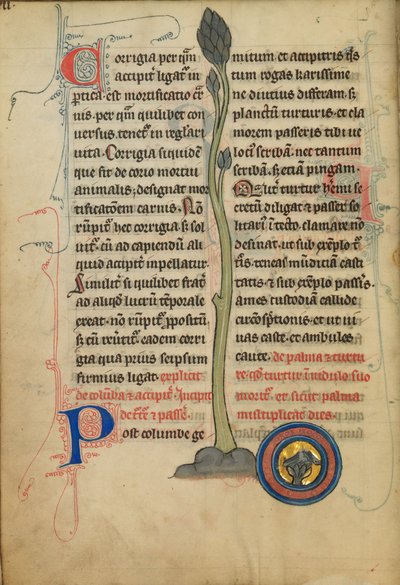 VII.
Corrigia per qm̄
accipit̄ ligat̄ in
ptica. est mortificatio cr̄
nis. per qm̄ quilibet con
uersus. tenet̄ in reglari
uita. Corrigia siquidē
que fit de corio mortui
animalis; designat mor
tificatōem carnis. Nō
rūpit̄ hec corrigia sꝫ sol
uit̄. cū ad capiendū ali
quid accipit̄ impellatur.
Similit̄ si quilibet frat̄
ad aliqd̄ lucrū tēporale
exeat. nō rūpit̄ ppositū
sꝫ cū reūtit̄. eadem corri
gia qua prius seipsum
firmius ligat. explicit
de colūba & accipit̄. Incipit
p̄ de t̄t̄e & passē.
Post columbe ge
mitum et accipitris q̄s
tum rogas karissime
ne diutius differam. sꝫ
planctū turturis. et cla
morem passeris tibi ue
loci scribā. nec tantum
scribā. sꝫ etiā pingam.
turtur hemi se
cretū diligat & passer so
litari⁹ ī tecto. clamare nō
desinat. ut sub exemplo t̄
tis. teneas mūdiciā casti
tatis. & sub exēplo passis.
ames custodiam callide
circōsptionis. et ut ui
uas caste. et ambules
caute. de palma & turtu
re qd̄ turtur ī nidulo suo
morit̄. et sicut palma
multiplicat dies.